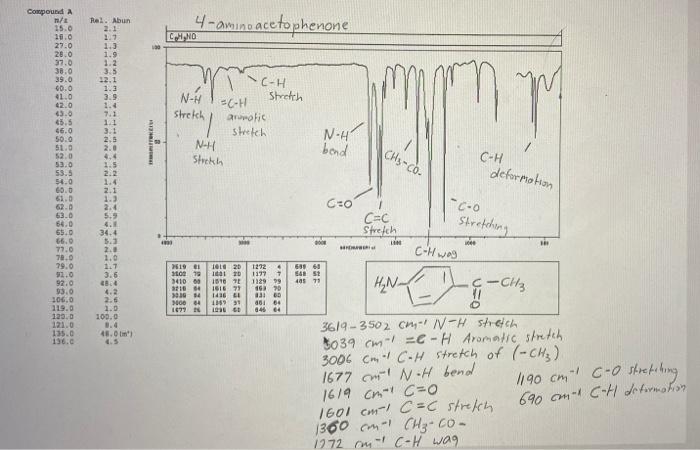 Compound A
m/z Rel. Abun
15.0 2.1
18.0 1.7
27.0 1.3
28.0 1.9
37.0 1.2
38.0 3.5
39.0 12.1
40.0 1.3
41.0 3.9
42.0 1.4
43.0 7.1
45.5 1.1
46.0 3.1
50.0 2.5
51.0 2.8
52.0 4.4
53.0 1.5
53.5 2.2
54.0 1.4
60.0 2.1
61.0 1.3
62.0 2.4
63.0 5.9
64.0 4.8
65.0 34.4
66.0 5.3
77.0 2.8
78.0 1.0
79.0 1.7
91.0 3.6
92.0 48.4
93.0 4.2
106.0 2.6
119.0 1.0
120.0 100.0
121.0 8.4
135.0 48.0 (m⁺)
136.0 4.5
4-aminoacetophenone
C₈H₉NO
100
N-H
stretch
N-H
Stretch
=C-H
aromatic
stretch
C-H
Stretch
N-H
bend
C=O
C=C
Stretch
CH₃-CO-
C-H wag
C-O
Stretching
C-H
deformation
50
0
4000 3000 2000 1500 1000 500
3410
3039
3006
1677
1619
1601
1272 4
1177 7
1129 79
H₂N
C-CH₃
O
3619-3502 cm⁻¹ N-H stretch
3039 cm⁻¹ =C-H Aromatic stretch
3006 cm⁻¹ C-H stretch of (-CH₃)
1677 cm⁻¹ N-H bend
1619 cm⁻¹ C=O
1601 cm⁻¹ C=C stretch
1360 cm⁻¹ CH₃-CO-
1272 cm⁻¹ C-H wag
1190 cm⁻¹ C-O stretching
690 cm⁻¹ C-H deformation